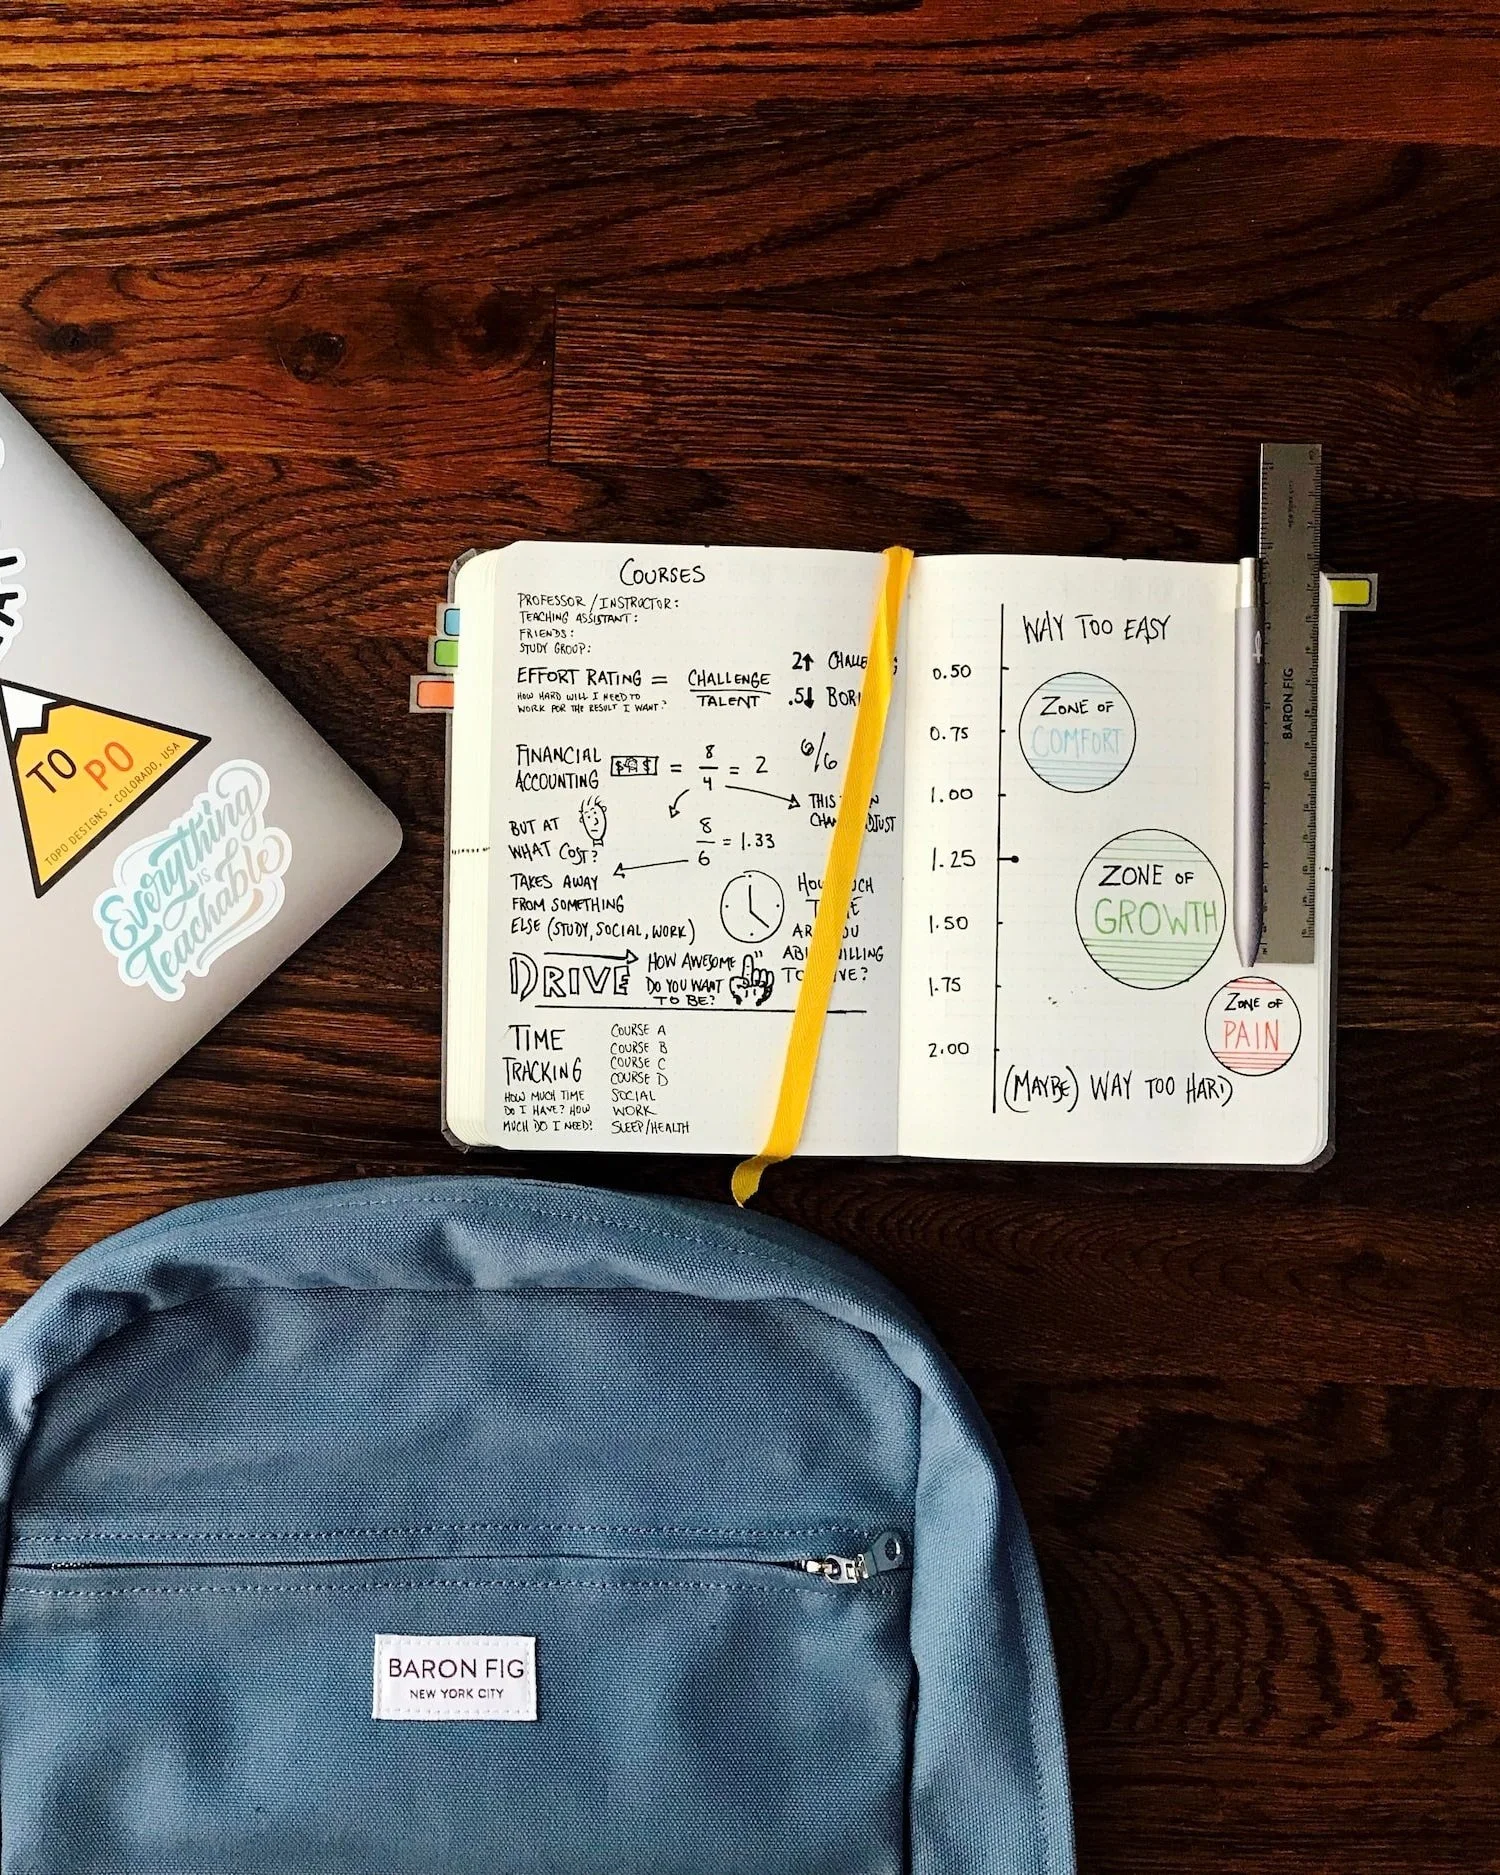 COURSES
PROFESSOR / INSTRUCTOR:
TEACHING ASSISTANT:
FRIENDS:
STUDY GROUP:
EFFORT RATING = CHALLENGE
TALENT
HOW HARD WILL I NEED TO
WORK FOR THE RESULT I WANT?
2↑
.5↓
FINANCIAL
ACCOUNTING
$ $ = 8/4 = 2
6/6
BUT AT
WHAT COST?
8/6 = 1.33
THIS
TAKES AWAY
FROM SOMETHING
ELSE (STUDY, SOCIAL, WORK)
DRIVE
HOW AWESOME
DO YOU WANT
TO BE?
TIME
TRACKING
HOW MUCH TIME
DO I HAVE? HOW
MUCH DO I NEED?
COURSE A
COURSE B
COURSE C
COURSE D
SOCIAL
WORK
SLEEP/HEALTH
WAY TOO EASY
0.50
0.75
1.00
1.25
1.50
1.75
2.00
ZONE OF
COMFORT
ZONE OF
GROWTH
ZONE OF
PAIN
(MAYBE) WAY TOO HARD
BARON FIG
TOPO
TOPO DESIGNS • COLORADO, USA
Everything
is
Teachable
BARON FIG
NEW YORK CITY